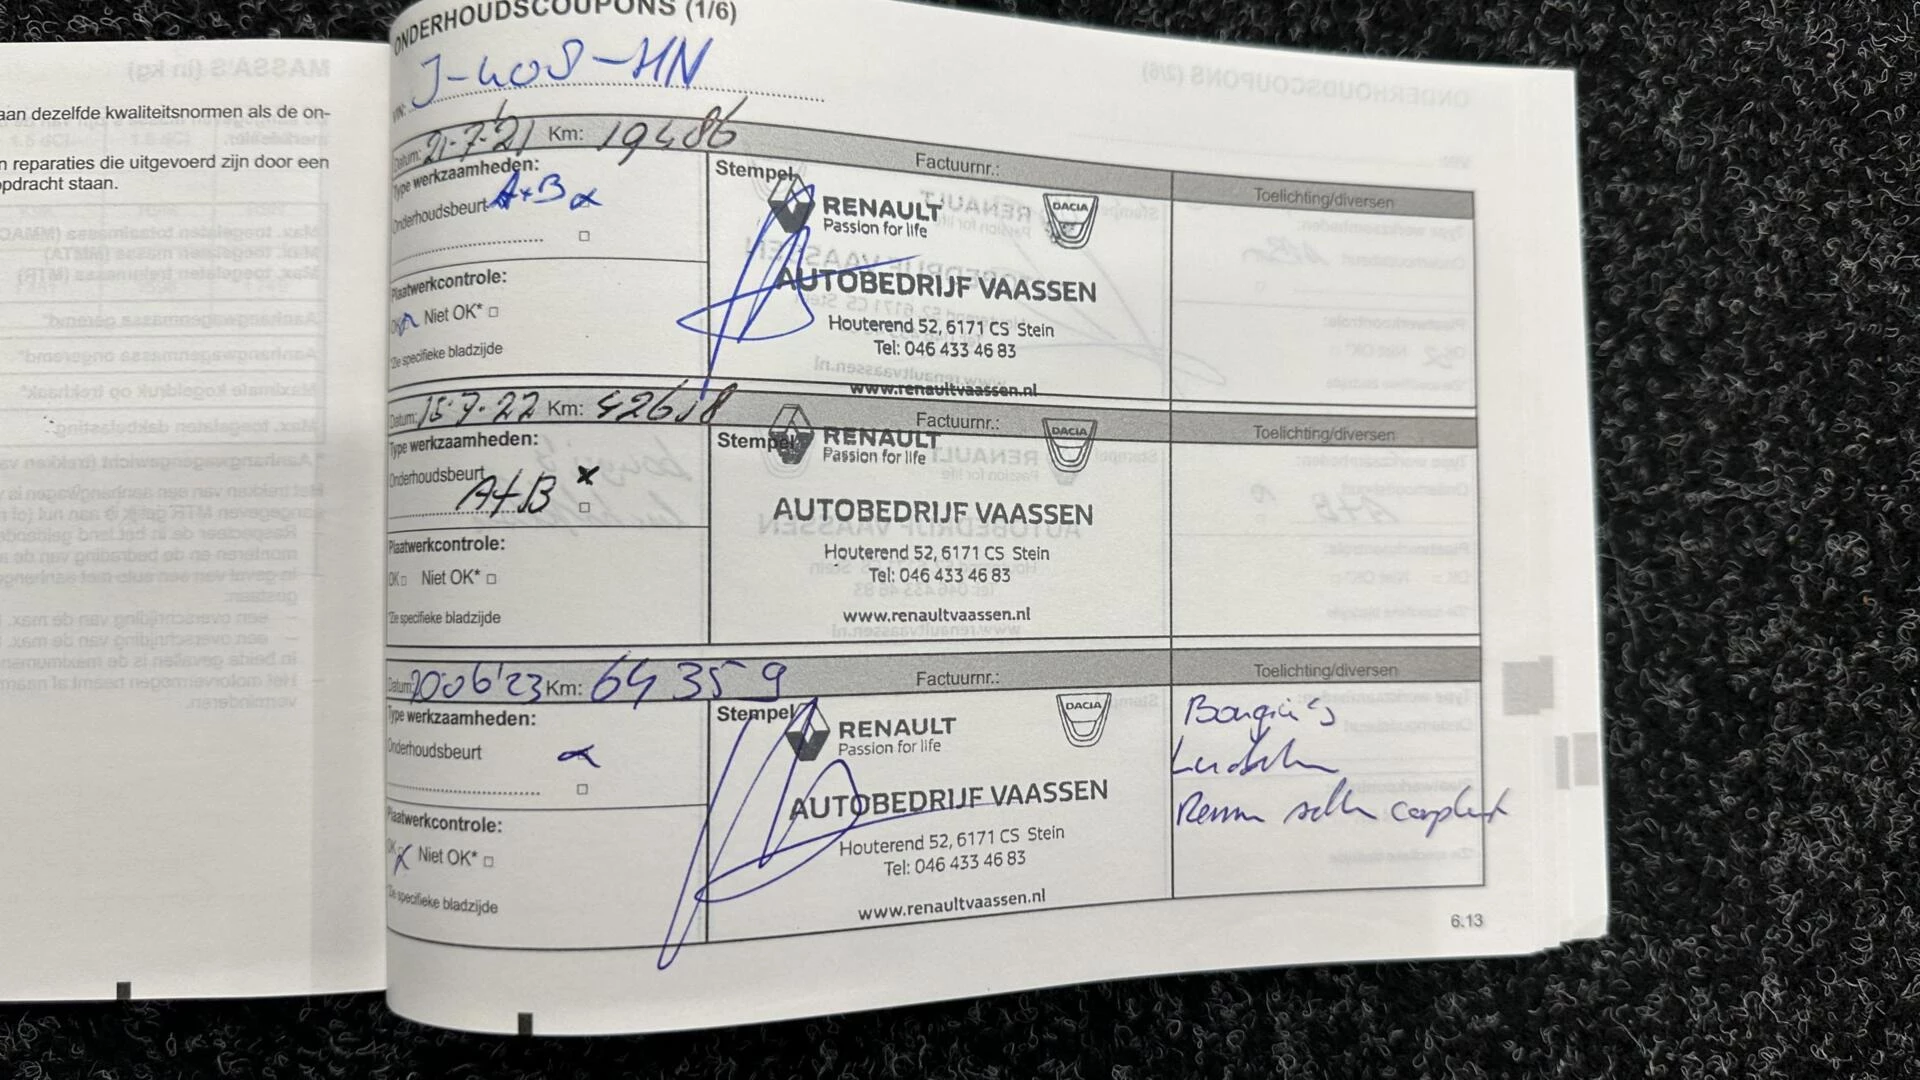 aan dezelfde kwaliteitsnormen als de on-
n reparaties die uitgevoerd zijn door een
opdracht staan.
ONDERHOUDSCOUPONS (1/6)
VIN: J-408-HN
Datum: 21-7-'21 Km: 19486 Factuurnr.: Toelichting/diversen
Type werkzaamheden:
Onderhoudsbeurt A+B
Plaatwerkcontrole:
OK Niet OK*
*Zie specifieke bladzijde
Stempel
RENAULT
Passion for life
DACIA
AUTOBEDRIJF VAASSEN
Houterend 52, 6171 CS Stein
Tel: 046 433 46 83
www.renaultvaassen.nl
Datum: 15-7-22 Km: Factuurnr.: Toelichting/diversen
Type werkzaamheden:
Onderhoudsbeurt
A+B
Plaatwerkcontrole:
OK Niet OK*
*Zie specifieke bladzijde
Stempel
RENAULT
Passion for life
DACIA
AUTOBEDRIJF VAASSEN
Houterend 52, 6171 CS Stein
Tel: 046 433 46 83
www.renaultvaassen.nl
Datum: 20-06'23 Km: 64359 Factuurnr.: Toelichting/diversen
Type werkzaamheden:
Onderhoudsbeurt
Plaatwerkcontrole:
OK Niet OK*
*Zie specifieke bladzijde
Stempel
RENAULT
Passion for life
DACIA
AUTOBEDRIJF VAASSEN
Houterend 52, 6171 CS Stein
Tel: 046 433 46 83
www.renaultvaassen.nl
Bougie's
6.13